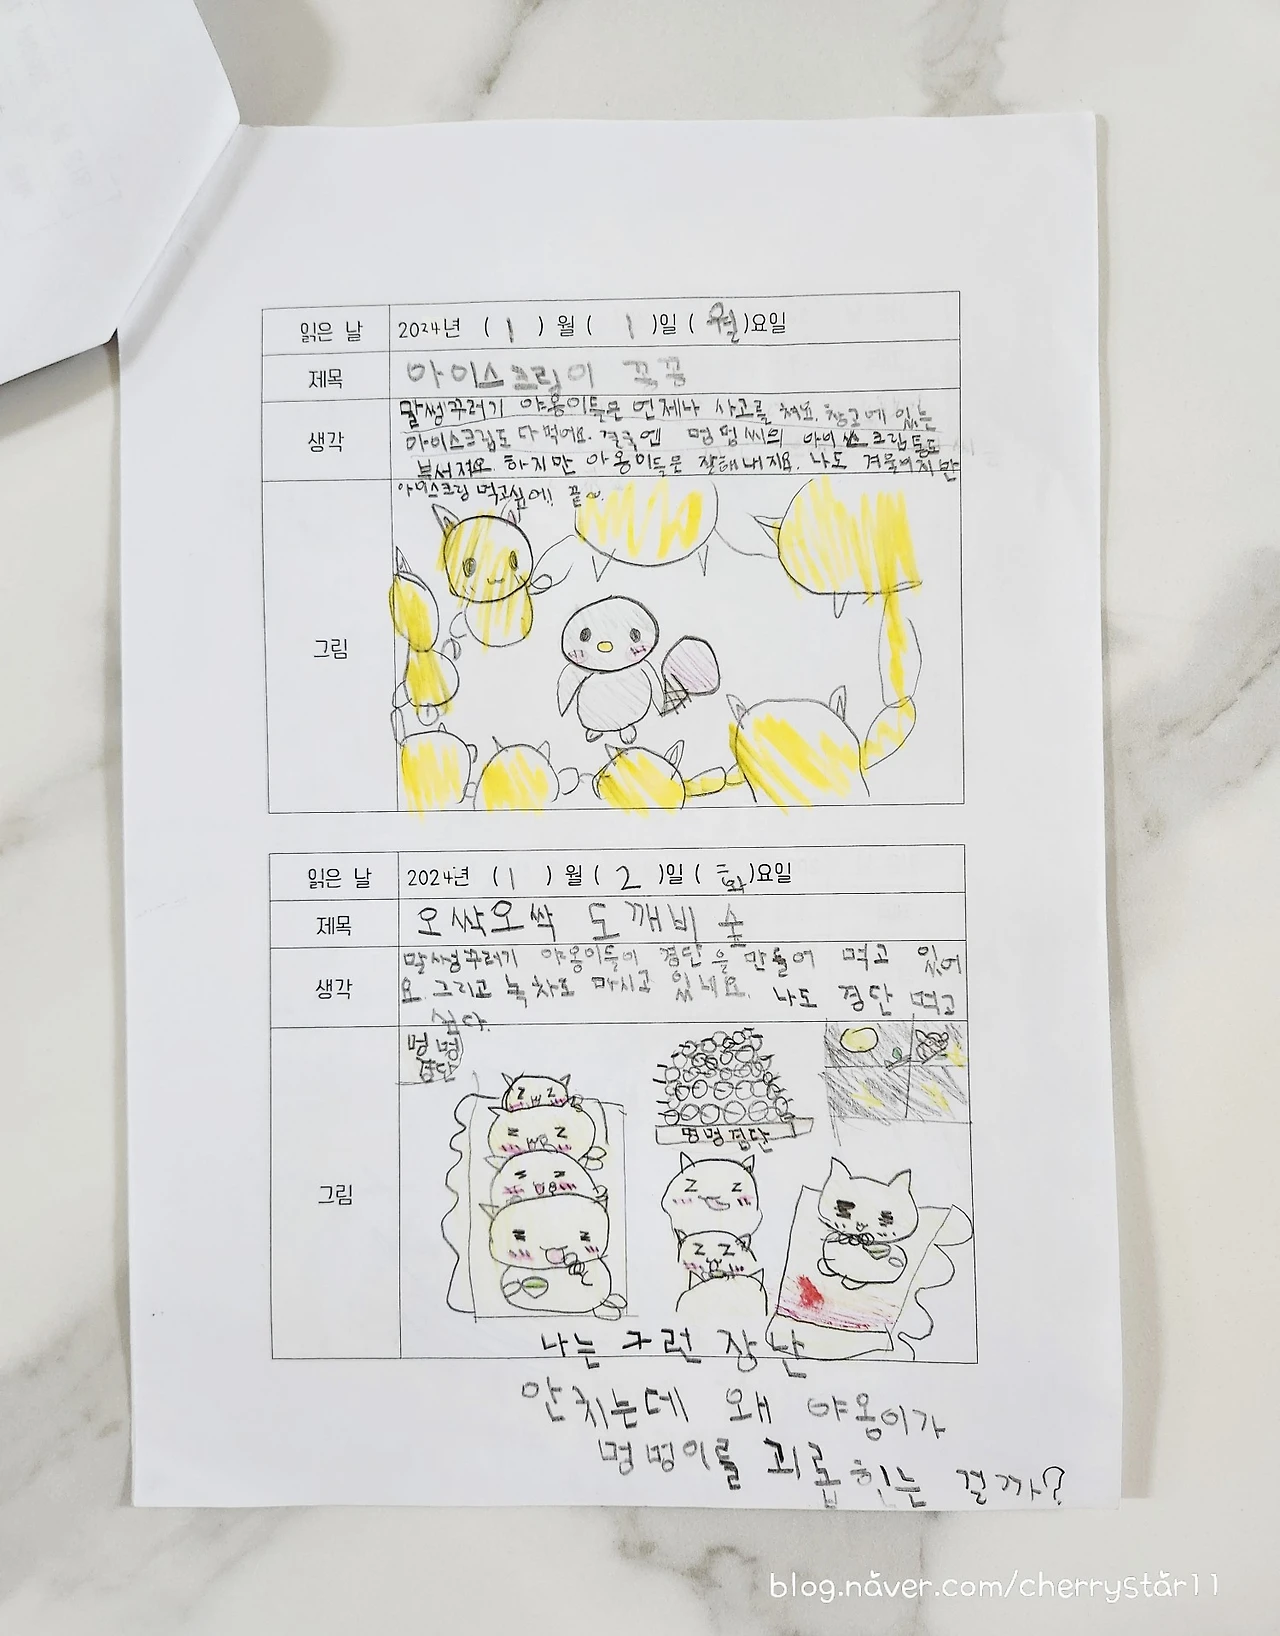 읽은 날 2024년 ( 1 ) 월 ( 1 )일 ( 월 )요일
제목 아이스크림이 꽁꽁
생각
말썽꾸러기 야옹이들은 언제나 사고를 쳐요. 창고에 있는
아이스크림도 다 먹어요. 결국엔 멍멍씨의 아이스크림통도
부서져요. 하지만 야옹이들은 잘해내지요. 나도 겨울에
아이스크림 먹고싶어!! 끝~.
그림
읽은 날 2024년 ( 1 ) 월 ( 2 )일 ( 화 )요일
제목 오싹오싹 도깨비 숲
생각
말썽꾸러기 야옹이들이 경단을 만들어 먹고 있어
요. 그리고 녹차도 마시고 있네요. 나도 경단 먹고
싶다.
그림
멍멍
경단
멍멍경단
나는 구런 장난
안치는데 왜 야옹이가
멍멍이를 괴롭힌는 걸까?
blog.naver.com/cherrystar11